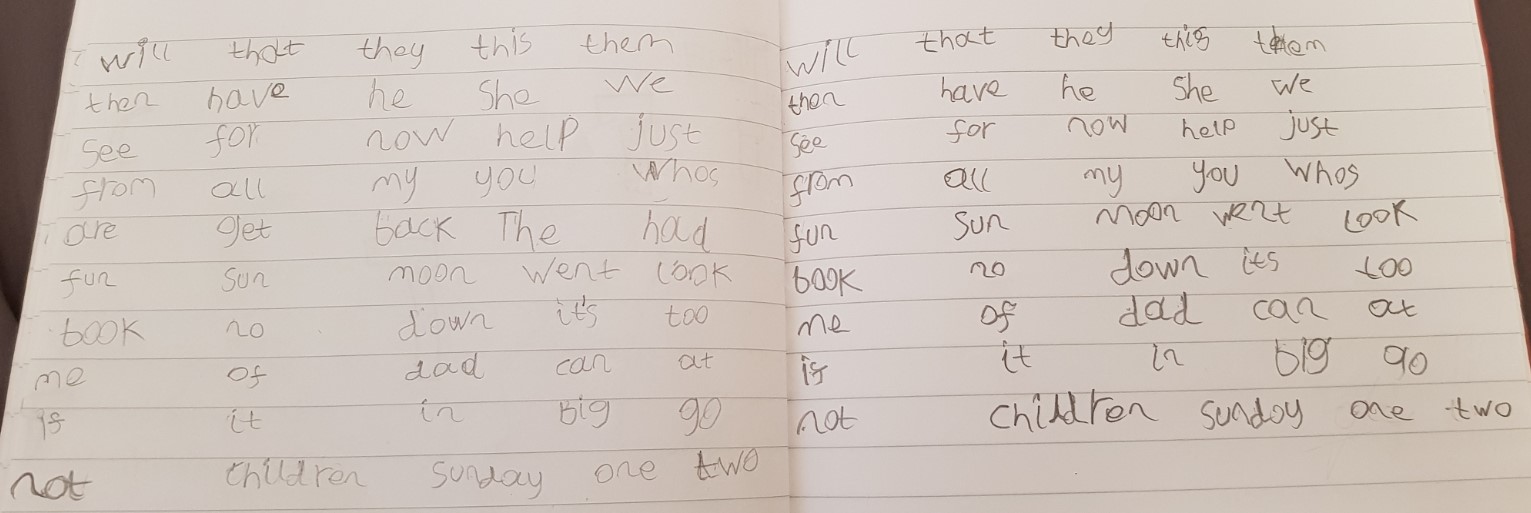 will that they this them
then have he She We
see for now help just
from all my you Whos
are get back The had
fun sun moon went look
book no down it's too
me of dad can at
is it in Big go
not children sunday one two
will that they this them
then have he She we
see for now help just
from all my you whos
fun sun moon went look
book no down its too
me of dad can at
is it in big go
not children sunday one two